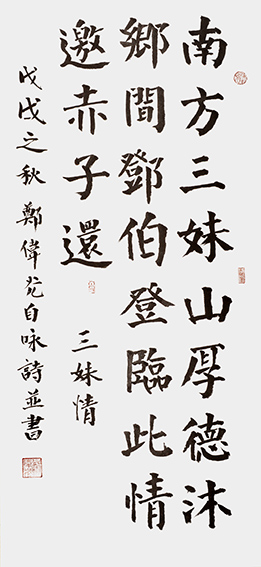 南方三妹山厚德沐
鄉間鄧伯登臨此情
邀赤子還
三妹情
戊戌之秋鄭偉完自咏詩並書